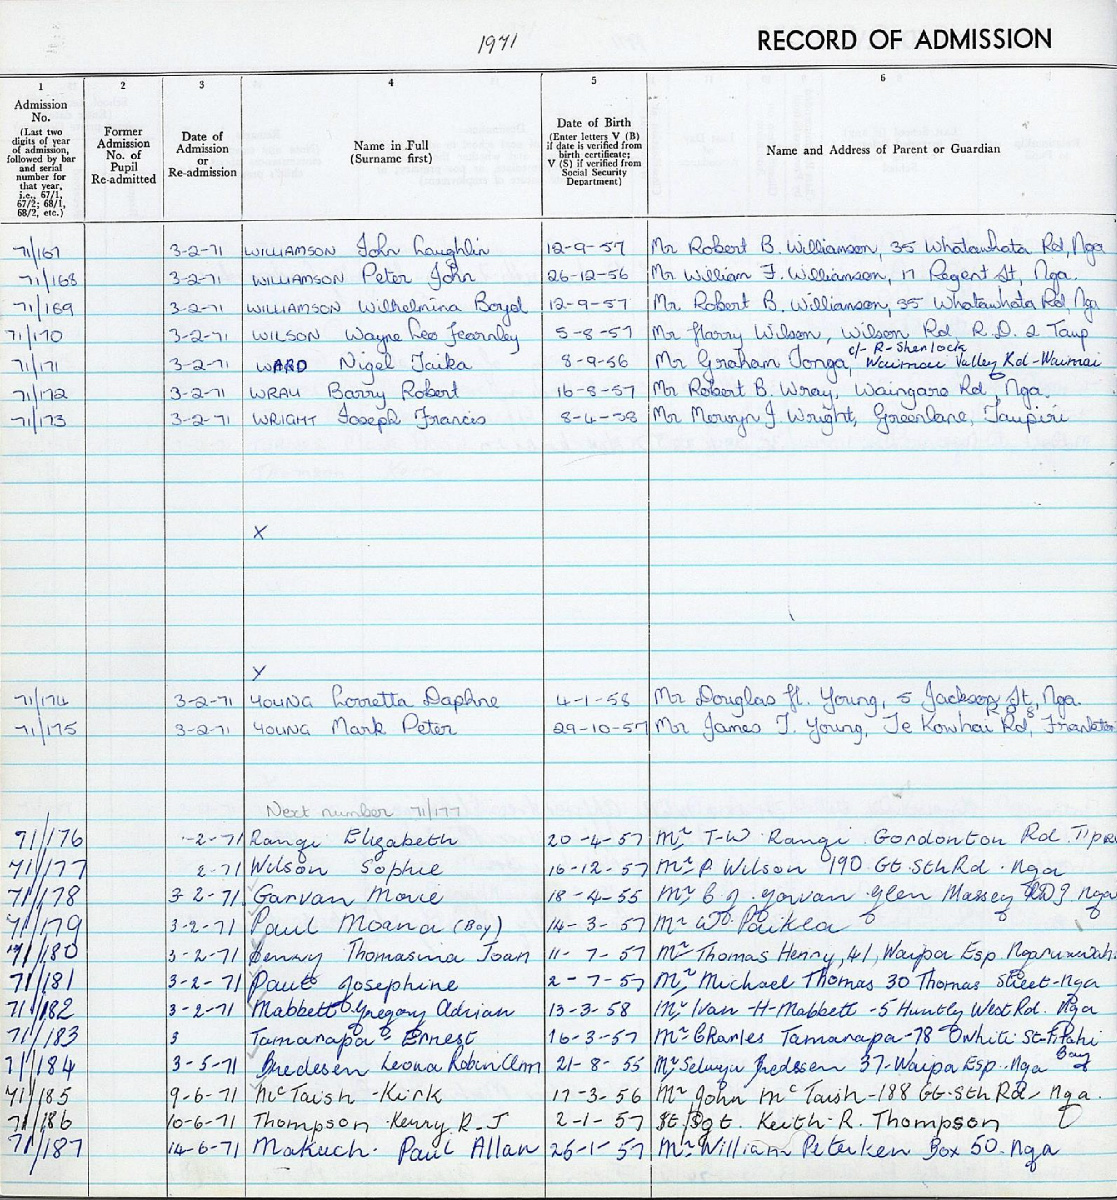 1971 RECORD OF ADMISSION
1 2 3 4 5 6
Admission No. (Last two digits of year of admission, followed by bar and serial number for that year, i.e., 67/1, 67/2; 68/1, 68/2, etc.)
Former Admission No. of Pupil Re-admitted
Date of Admission or Re-admission
Name in Full (Surname first)
Date of Birth (Enter letters V (B) if date is verified from birth certificate; V (S) if verified from Social Security Department)
Name and Address of Parent or Guardian
71/167 3-2-71 WILLIAMSON John Loughlin 12-9-57 Mr Robert B. Williamson, 35 Whatawhata Rd, Nga
71/168 3-2-71 WILLIAMSON Peter John 26-12-56 Mr William F. Williamson, 17 Regent St, Nga.
71/169 3-2-71 WILLIAMSON Wilhelmina Boyd 12-9-57 Mr Robert B. Williamson, 35 Whatawhata Rd, Nga
71/170 3-2-71 WILSON Wayne Leo Fearnley 5-8-57 Mr Harry Wilson, Wilson Rd R.D. 2 Taup
c/- R-Sherlock
71/171 3-2-71 WARD Nigel Taika 8-9-56 Mr Graham Tonga, Waimai Valley Rd-Waimai
71/172 3-2-71 WRAY Barry Robert 16-8-57 Mr Robert B. Wray, Waingaro Rd, Nga.
71/173 3-2-71 WRIGHT Joseph Francis 8-4-58 Mr Mervyn J. Wright, Greenlane, Taupiri
X
Y
71/174 3-2-71 YOUNG Lorretta Daphne 4-1-58 Mr Douglas H. Young, 5 Jackson St, Nga.
R D 8
71/175 3-2-71 YOUNG Mark Peter 29-10-57 Mr James T. Young, Te Kowhai Rd, Frankton
Next number 71/177
71/176 -2-71 Rangi Elizabeth 20-4-57 Mr T-W Rangi Gordonton Rd. Tipri
71/177 2-71 Wilson Sophie 16-12-57 Mr P Wilson 190 Gt. Sth Rd. Nga
71/178 3-2-71 Garvan Marie 18-4-55 Mr B J. Garvan Glen Massey RD Nga
71/179 3-2-71 Paul Moana (Boy) 14-3-57 Mr Wt Paikea
71/180 3-2-71 Henry Thomasina Joan 11-7-57 Mr Thomas Henry, 41, Waipa Esp. Ngaruawah
71/181 3-2-71 Paul Josephine 2-7-57 Mr Michael Thomas 30 Thomas Street-Nga
71/182 3-2-71 Mabbett Gregory Adrian 13-3-58 Mr Ivan -H-Mabbett -5 Huntly West Rd. Nga
71/183 3 Tamanapa Ernest 16-3-57 Mr Charles Tamanapa-78
Bay
71/184 3-5-71 Bredesen Leona Robin Ann 21-8-55 Mr Selwyn Bredesen 37-Waipa Esp. Nga
71/185 9-6-71 McTaish -Kirk 17-3-56 Mr John McTaish-188 Gt-Sth Rd. Nga.
71/186 10-6-71 Thompson Kerry R. J 2-1-57 St. Sgt. Keith-R. Thompson
71/187 14-6-71 Makuch. Paul Allan 26-1-57 Mr William Peterken Box 50. Nga